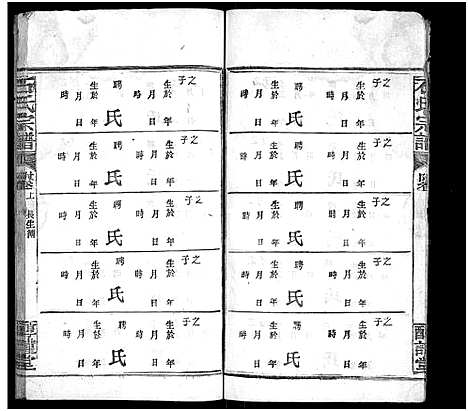 石氏宗譜
之子
生於 年 月 日 時
聘 氏
生於 年 月 日 時
之子
生於 年 月 日 時
聘 氏
生於 年 月 日 時
之子
生於 年 月 日 時
聘 氏
生於 年 月 日 時
之子
生於 年 月 日 時
聘 氏
生於 年 月 日 時
之子
生於 年 月 日 時
聘 氏
生於 年 月 日 時
之子
生於 年 月 日 時
聘 氏
生於 年 月 日 時
之子
生於 年 月 日 時
聘 氏
生於 年 月 日 時
之子
生於 年 月 日 時
聘 氏
生於 年 月 日 時
之子
生於 年 月 日 時
聘 氏
生於 年 月 日 時
之子
生於 年 月 日 時
聘 氏
生於 年 月 日 時
石氏宗譜
上
長生
堂